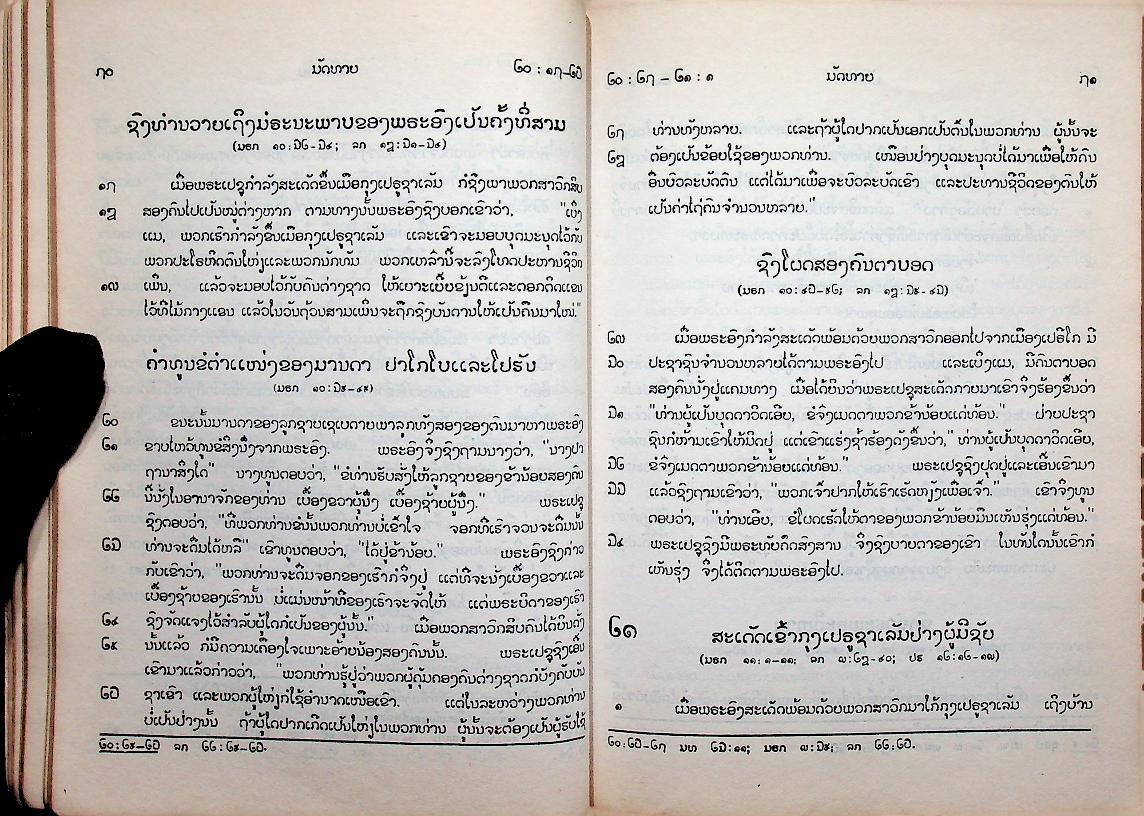 ໗໐ ມັດທາຍ ໒໐ : ໑໗-໒໖
ຊົງທຳນວາຍເຖິງມໍຣະນະພາບຂອງພຣະອົງເປັນຄັ້ງທີ່ສາມ
(ມຣກ ໑໐ : ໓໒-໓໔; ລກ ໑໘ : ໓໑-໓໔)
໑໗ ເມື່ອພຣະເຢຊູກຳລັງສະເດັດຂຶ້ນເມືອກຸງເຢຣູຊາເລັມ ກໍຊົງພາພວກສາວົກສິບ
໑໘ ສອງຄົນໄປເປັນໝູ່ຕ່າງຫາກ ຕາມທາງນັ້ນພຣະອົງຊົງບອກເຂົາວ່າ, "ເບິ່ງ
ແມ, ພວກເຮົາກຳລັງຂຶ້ນເມືອກຸງເຢຣູຊາເລັມ ແລະເຂົາຈະມອບບຸດມະນຸດໄວ້ກັບ
ພວກປະໂຣຫິດຕົນໃຫຍ່ແລະພວກນັກທັມ ພວກເຫລົ່ານີ້ຈະລົງໂທດປະຫານຊີວິດ
໑໙ ເພິ່ນ, ແລ້ວຈະມອບໄວ້ກັບຄົນຕ່າງຊາດ ໃຫ້ເຍາະເຍີ້ຍຂ້ຽນຕີແລະຕອກຕິດແຂນ
ໄວ້ທີ່ໄມ້ກາງແຂນ ແລ້ວໃນວັນຖ້ວນສາມເພິ່ນຈະຖືກຊົງບັນດານໃຫ້ເປັນຄືນມາໃໝ່."
ຄຳທູນຂໍຕຳແໜ່ງຂອງມານດາ ຢາໂກໂບແລະໂຢຮັນ
(ມຣກ ໑໐ : ໓໕-໔໕)
໒໐ ຂະນະນັ້ນມານດາຂອງລູກຊາຍເຊເບດາຍພາລູກທັງສອງຂອງຕົນມາຫາພຣະອົງ
໒໑ ຂາບໄຫວ້ທູນຂໍສິ່ງນຶ່ງຈາກພຣະອົງ. ພຣະອົງຈຶ່ງຊົງຖາມນາງວ່າ, "ນາງປາ
ຖານາສິ່ງໃດ" ນາງທູນຕອບວ່າ, "ຂໍທ່ານຮັບສັ່ງໃຫ້ລູກຊາຍຂອງຂ້ານ້ອຍສອງຄົນ
໒໒ ນີ້ນັ່ງໃນອານາຈັກຂອງທ່ານ ເບື້ອງຂວາຜູ້ນຶ່ງ ເບື້ອງຊ້າຍຜູ້ນຶ່ງ." ພຣະເຢຊູ
ຊົງຕອບວ່າ, "ທີ່ພວກທ່ານຂໍນັ້ນພວກທ່ານບໍ່ເຂົ້າໃຈ ຈອກທີ່ເຮົາຈວນຈະດື່ມນັ້ນ
໒໓ ທ່ານຈະດື່ມໄດ້ຫລື" ເຂົາທູນຕອບວ່າ, "ໄດ້ຢູ່ຂ້ານ້ອຍ." ພຣະອົງຊົງກ່າວ
ກັບເຂົາວ່າ, "ພວກທ່ານຈະດື່ມຈອກຂອງເຮົາກໍຈິງຢູ່ ແຕ່ທີ່ຈະນັ່ງເບື້ອງຂວາແລະ
ເບື້ອງຊ້າຍຂອງເຮົານັ້ນ ບໍ່ແມ່ນໜ້າທີ່ຂອງເຮົາຈະຈັດໃຫ້ ແຕ່ພຣະບິດາຂອງເຮົາ
໒໔ ຊົງຈັດແຈງໄວ້ສຳລັບຜູ້ໃດກໍເປັນຂອງຜູ້ນັ້ນ." ເມື່ອພວກສາວົກສິບຄົນໄດ້ຍິນດັ່ງ
໒໕ ນັ້ນແລ້ວ ກໍມີຄວາມເຄືອງໃຈເພາະອ້າຍນ້ອງສອງຄົນນັ້ນ. ພຣະເຢຊູຊົງເອີ້ນ
ເຂົາມາແລ້ວກ່າວວ່າ, "ພວກທ່ານຮູ້ຢູ່ວ່າພວກຜູ້ຄຸ້ມຄອງຄົນຕ່າງຊາດກໍບັງຄັບບັນ
໒໖ ຊາເຂົາ ແລະພວກຜູ້ໃຫຍ່ກໍໃຊ້ອຳນາດເໜືອເຂົາ. ແຕ່ໃນລະຫວ່າງພວກທ່ານ
ບໍ່ເປັນຢ່າງນັ້ນ ຖ້າຜູ້ໃດຢາກເກີດເປັນໃຫຍ່ໃນພວກທ່ານ ຜູ້ນັ້ນຈະຕ້ອງເປັນຜູ້ຮັບໃຊ້
໒໐:໒໕-໒໖ ລກ ໒໒:໒໕-໒໖.
໒໐ : ໒໗ - ໒໑ : ໑ ມັດທາຍ ໗໑
໒໗ ທ່ານທັງຫລາຍ. ແລະຖ້າຜູ້ໃດຢາກເປັນເອກເປັນຕົ້ນໃນພວກທ່ານ ຜູ້ນັ້ນຈະ
໒໘ ຕ້ອງເປັນຂ້ອຍໃຊ້ຂອງພວກທ່ານ. ເໝືອນຢ່າງບຸດມະນຸດບໍ່ໄດ້ມາເພື່ອໃຫ້ຄົນ
ອື່ນບົວລະບັດຕົນ ແຕ່ໄດ້ມາເພື່ອຈະບົວລະບັດເຂົາ ແລະປະທານຊີວິດຂອງຕົນໃຫ້
ເປັນຄ່າໄຖ່ຄົນຈຳນວນຫລາຍ."
ຊົງໂຜດສອງຄົນຕາບອດ
(ມຣກ ໑໐:໔໖-໕໒; ລກ ໑໘:໓໕-໔໓)
໒໙ ເມື່ອພຣະອົງກຳລັງສະເດັດພ້ອມດ້ວຍພວກສາວົກອອກໄປຈາກເມືອງເຢຣິໂກ ມີ
໓໐ ປະຊາຊົນຈຳນວນຫລາຍໄດ້ຕາມພຣະອົງໄປ ແລະເບິ່ງແມ, ມີຄົນຕາບອດ
ສອງຄົນນັ່ງຢູ່ແຄມທາງ ເມື່ອໄດ້ຍິນວ່າພຣະເຢຊູສະເດັດກາຍມາເຂົາຈຶ່ງຮ້ອງຂຶ້ນວ່າ
໓໑ "ທ່ານຜູ້ເປັນບຸດດາວິດເອີຍ, ຂໍຈົ່ງເມດຕາພວກຂ້ານ້ອຍແດ່ທ້ອນ." ຝ່າຍປະຊາ
ຊົນກໍຫ້າມເຂົາໃຫ້ມິດຢູ່ ແຕ່ເຂົາແຮ່ງຊ້ຳຮ້ອງດັງຂຶ້ນວ່າ, "ທ່ານຜູ້ເປັນບຸດດາວິດເອີຍ,
໓໒ ຂໍຈົ່ງເມດຕາພວກຂ້ານ້ອຍແດ່ທ້ອນ." ພຣະເຢຊູຊົງຢຸດຢູ່ແລະເອີ້ນເຂົາມາ
໓໓ ແລ້ວຊົງຖາມເຂົາວ່າ, "ພວກເຈົ້າຢາກໃຫ້ເຮົາເຮັດຫຽັງເພື່ອເຈົ້າ." ເຂົາຈຶ່ງທູນ
ຕອບວ່າ, "ທ່ານເອີຍ, ຂໍໂຜດເຮັດໃຫ້ຕາຂອງພວກຂ້ານ້ອຍມືນເຫັນຮຸ່ງແດ່ທ້ອນ."
໓໔ ພຣະເຢຊູຊົງມີພຣະທັຍຄິດສົງສານ ຈຶ່ງຊົງບາຍຕາຂອງເຂົາ ໃນທັນໃດນັ້ນເຂົາກໍ
ເຫັນຮຸ່ງ ຈຶ່ງໄດ້ຕິດຕາມພຣະອົງໄປ.
໒໑ ສະເດັດເຂົ້າກຸງເຢຣູຊາເລັມຢ່າງຜູ້ມີຊັຍ
(ມຣກ ໑໑:໑-໑໑; ລກ ໑໙:໒໘-໔໐; ຢຮ ໑໒:໑໒-໑໙)
໑ ເມື່ອພຣະອົງສະເດັດພ້ອມດ້ວຍພວກສາວົກມາໃກ້ກຸງເຢຣູຊາເລັມ ເຖິງບ້ານ
໒໐:໒໖-໒໗ ມທ ໒໓:໑໑; ມຣກ ໙:໓໕; ລກ ໒໒:໒໖.